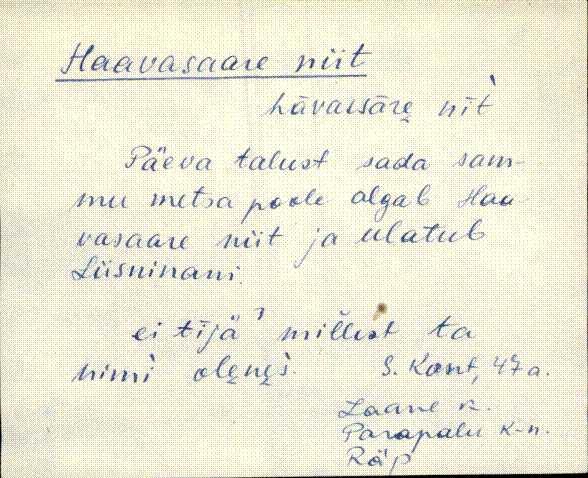 Haavasaare niit
hāvassāre̮ nìt
Päeva talust sada sam-
mu metsa poole algab Haa-
vasaare niit ja ulatub
Liisninani.
ei tijä' millest ta
nimi ole̮ne̮s. S. Kont, 47 a.
Laane k.
Parapalu k-n.
Räp